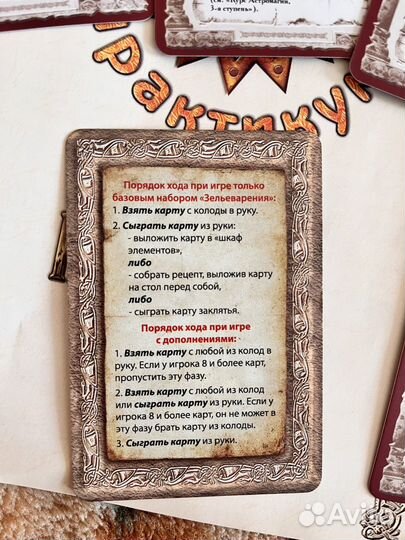 (см. «Курс Астромагии,
3-я ступень»).
Практику
Порядок хода при игре только
базовым набором «Зельеварения»:
1. Взять карту с колоды в руку.
2. Сыграть карту из руки:
- выложить карту в «шкаф
элементов»,
либо
- собрать рецепт, выложив карту
на стол перед собой,
либо
- сыграть карту заклятья.
Порядок хода при игре
с дополнениями:
1. Взять карту с любой из колод в
руку. Если у игрока 8 и более карт,
пропустить эту фазу.
2. Взять карту с любой из колод
или сыграть карту из руки. Если у
игрока 8 и более карт, он не может в
эту фазу брать карту из колоды.
3. Сыграть карту из руки.
Avito